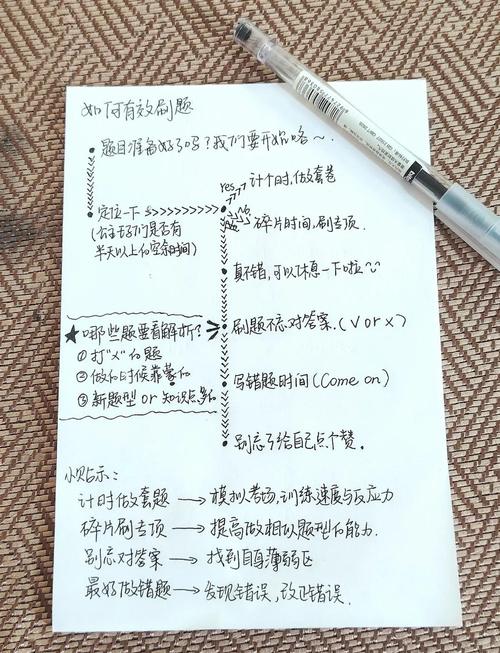 如何有效刷题
题目准备好了吗?我们要开始咯~
定位一下
(公主王子们是否有
半天以上的空余时间)
yes
计个时,做套卷
no
碎片时间,刷专项.
真不错,可以休息一下啦~
★哪些题要看解析?
①打"×"的题
②做的时候靠蒙的
③新题型 or 知识点多的
刷题不忘对答案.(√ or ×)
写错题时间(Come on)
别忘了给自己点个赞.
小贴示:
计时做套题 → 模拟考场,训练速度与反应力
碎片刷专项 → 提高做相似题型的能力.
别忘对答案 → 找到自身薄弱区
最好做错题 → 发现错误,改正错误.